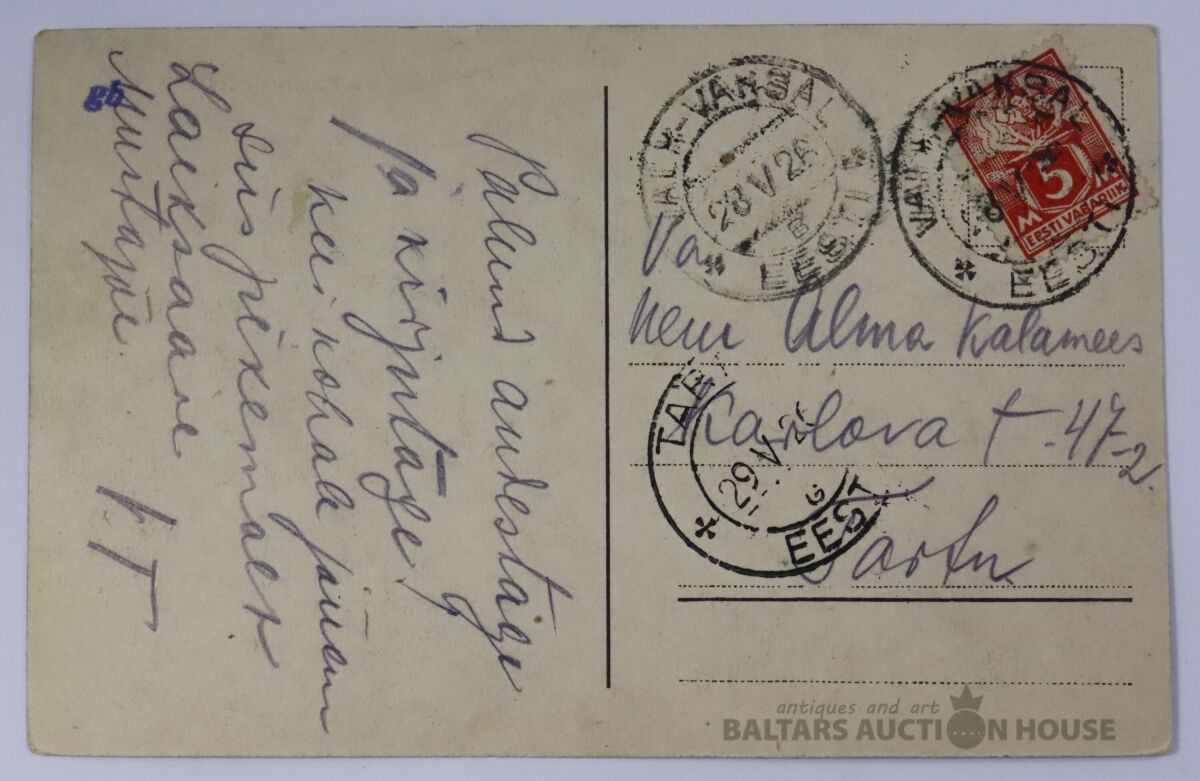 Palund andestage
ja kirjutage!
kui kohale jõuan
siis pikemalt
Laiksaare
Murtajõe
VALK-VAKSAL
28 V 26
B
EESTI
VALK-VAKSAL
EESTI
5
M M
EESTI VABARIIK
Neiu Alma Kalamees
Karlova t-47-2.
Tartu
TAR
29 V 26
G
EEST
antiques and art
BALTARS AUCTION HOUSE